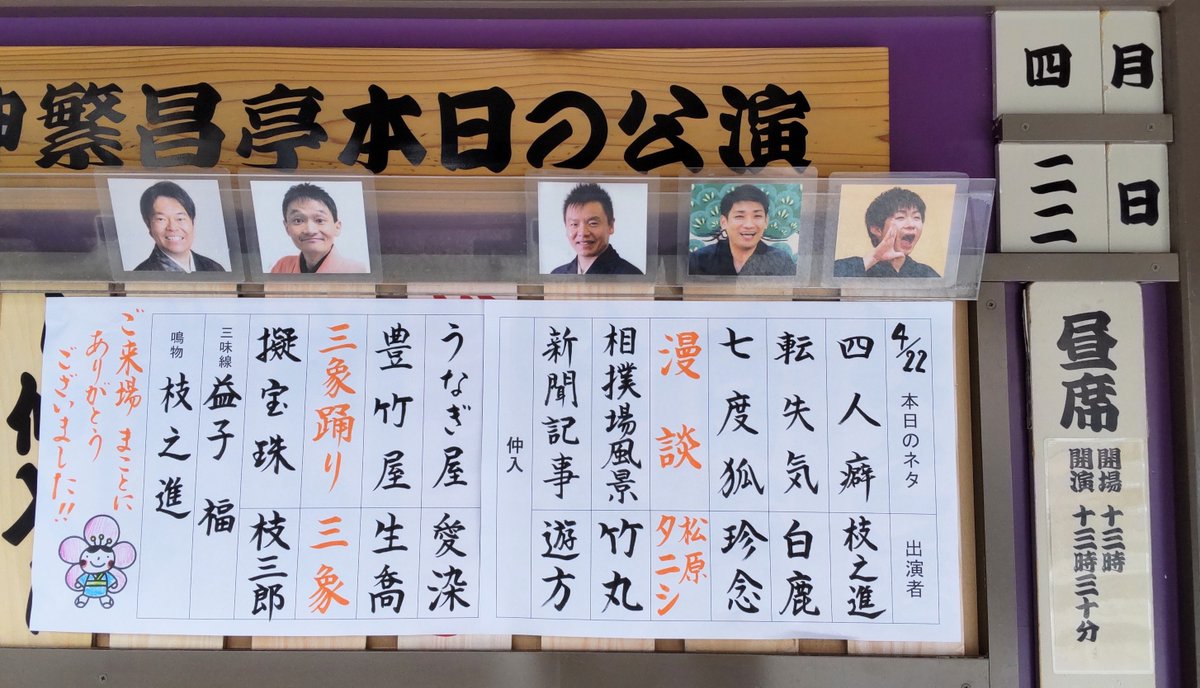 繁昌亭本日の公演
四月
二二日
昼席
開場 十三時
開演 十三時三十分
4/22 本日のネタ 出演者
四人癖 枝之進
転失気 白鹿
七度狐 珍念
漫談 松原タニシ
相撲場風景 竹丸
新聞記事 遊方
仲入
うなぎ屋 愛染
豊竹屋 生喬
三象踊り 三象
擬宝珠 枝三郎
三味線 益子 福
鳴物 枝之進
ご来場 まことに
ありがとう
ございました!!